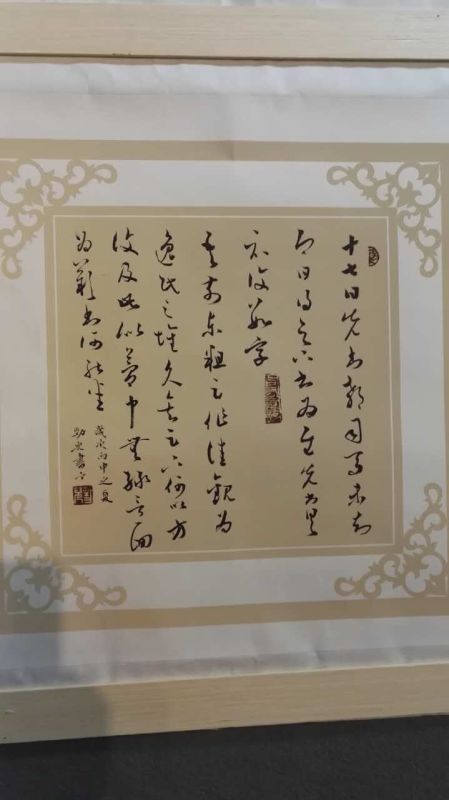 十七日先書郗司馬未去
即日得足下書為慰先書以具
示復數字
吾前東粗足作佳觀為
逸民之懷久矣足下何以方
復及此似夢中無緣言面
為歎書何能悉
歲次丙申之夏
書